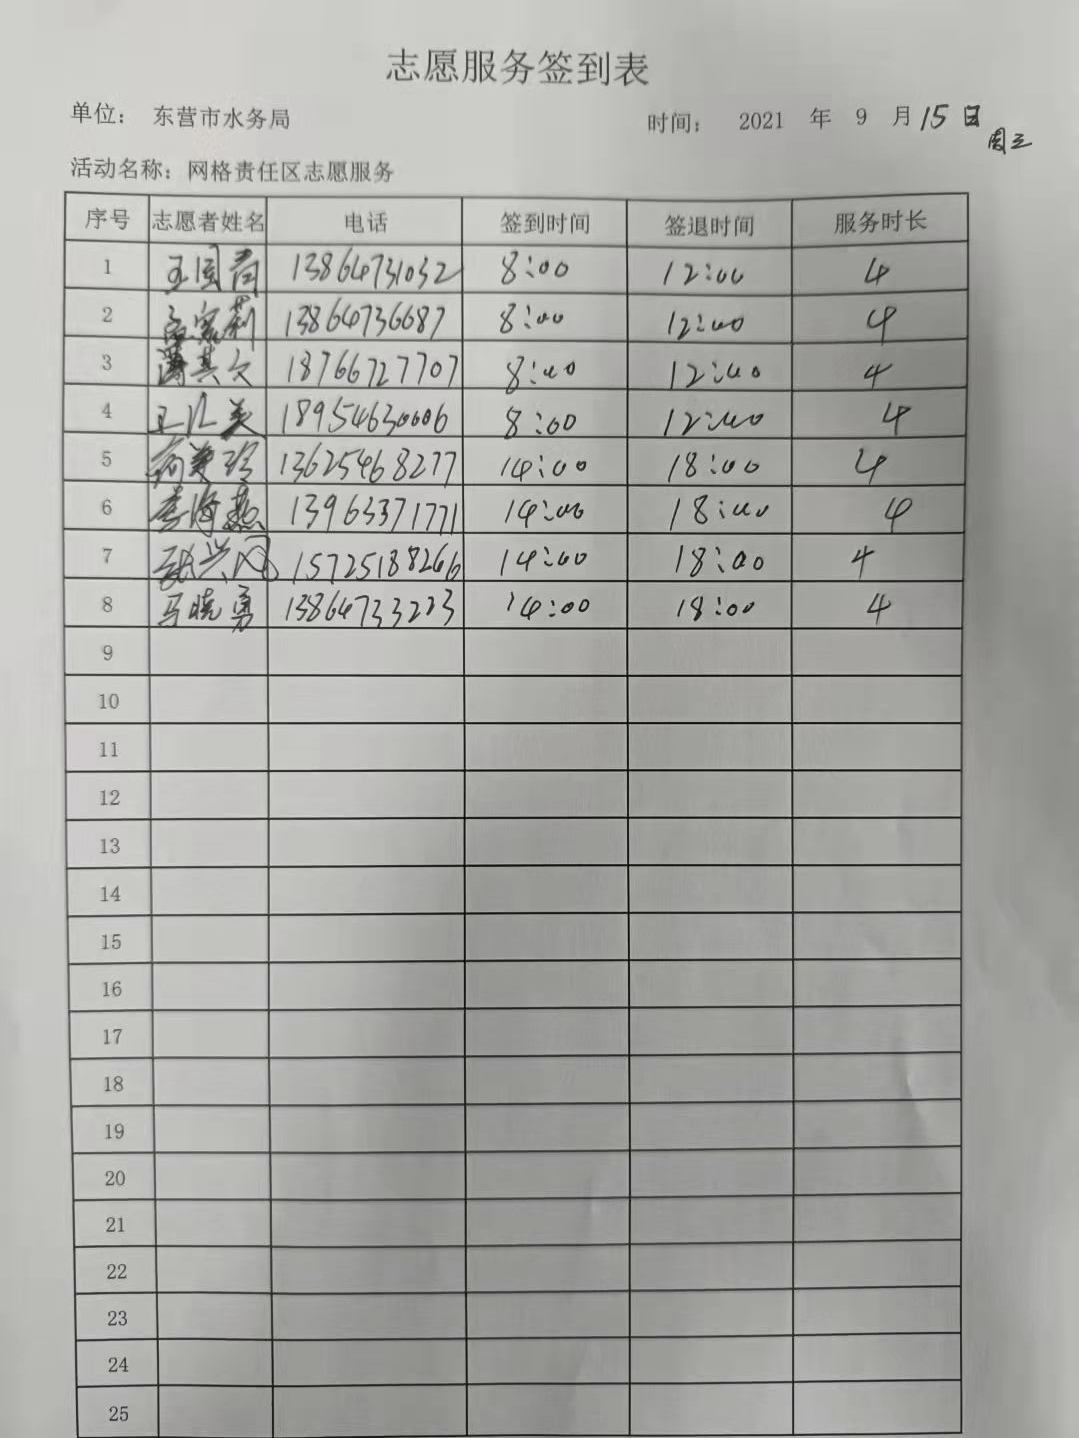 志愿服务签到表
单位： 东营市水务局
时间： 2021 年 9 月 15 日
周三
活动名称：网格责任区志愿服务
序号 志愿者姓名 电话 签到时间 签退时间 服务时长
1 王国 13864731032 8:00 12:00 4
2 家莉 13864736687 8:00 12:00 4
3 其 18766727707 8:00 12:00 4
4 王 美 18954630606 8:00 12:00 4
5 13625468277 14:00 18:00 4
6 李海燕 13963371771 14:00 18:00 4
7 张兴 15725188266 14:00 18:00 4
8 马晓勇 13864733223 14:00 18:00 4
9
10
11
12
13
14
15
16
17
18
19
20
21
22
23
24
25